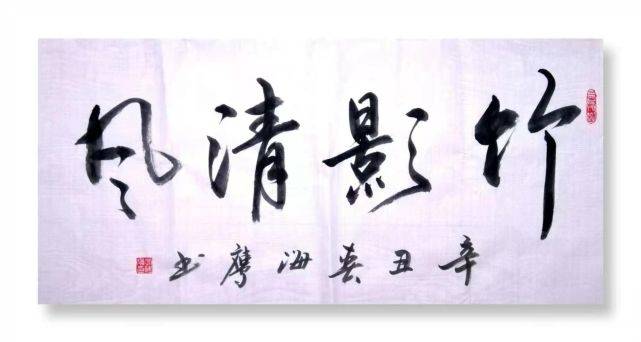 竹影清风
辛丑春海鹰书